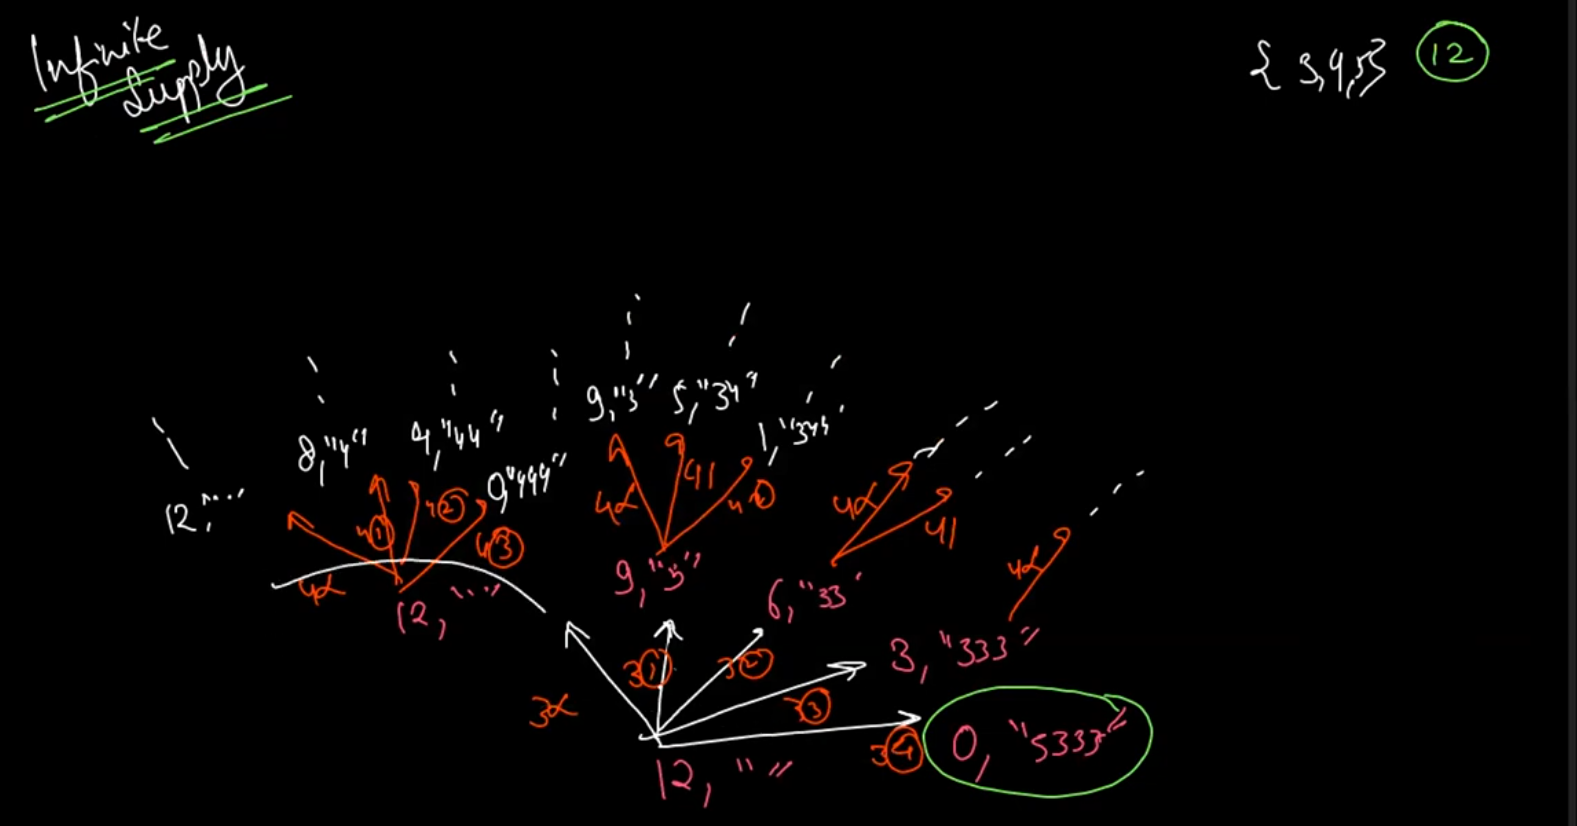 Infinite
Supply
{ 3,4,5} 12
9,"3" 5,"34"
8,"4" 4,"44" 1,"344"
12,"" 0,"444"
4x 4① 4② 4③
4x 41 4②
4x 41
4x
12, ""
9,"3"
6,"33"
3,"333"
3x 3① 3② 3③ 3④
0, "5333"
12, ""